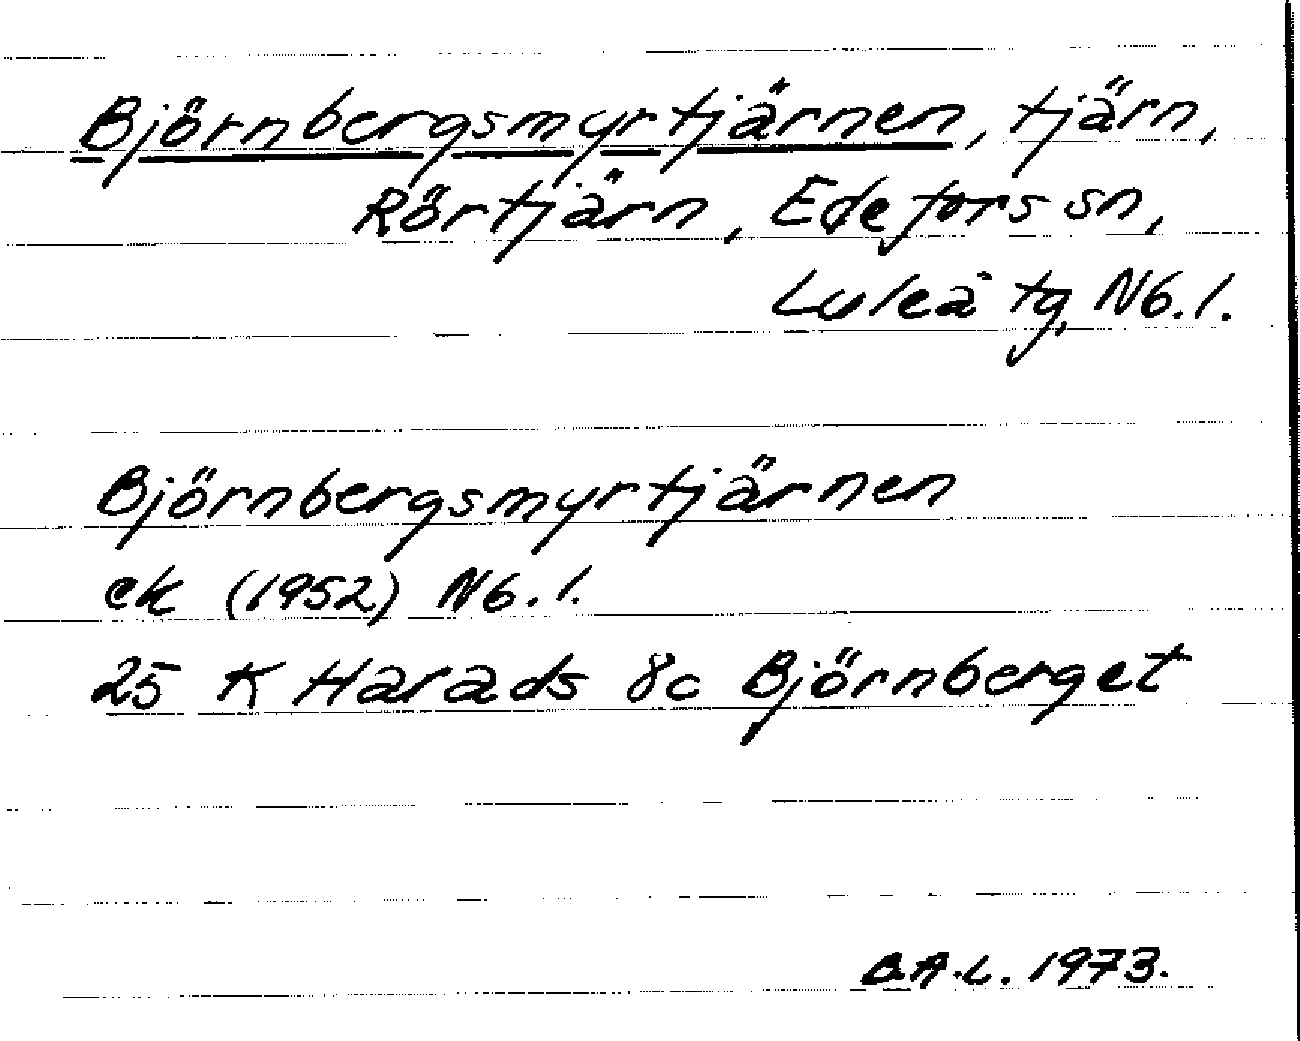 Björnbergsmyrtjärnen, tjärn,
Rörtjärn, Edefors sn,
Luleå tg, Nb.l.
Björnbergsmyrtjärnen
ek (1952) Nb.l.
25 K Harads 8c Björnberget
B.A.L. 1973.